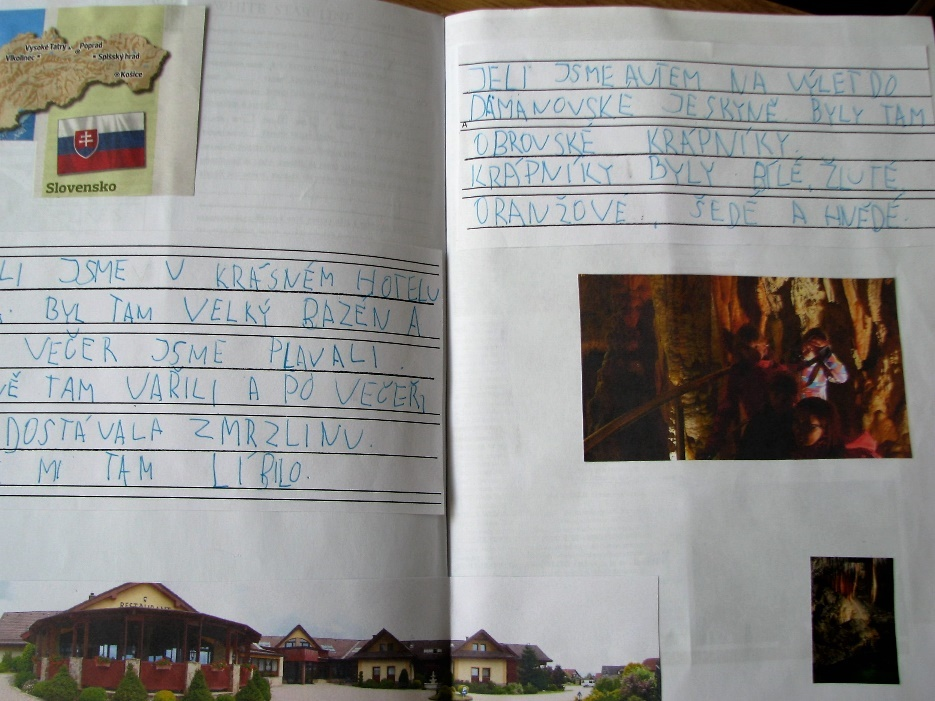 Vysoké Tatry
Poprad
Vlkolínec
Spišský hrad
Košice
Slovensko
LI JSME V KRÁSNÉM HOTELU
BYL TAM VELKÝ BAZÉN A
VEČER JSME PLAVALI.
VĚ TAM VAŘILI A PO VEČEŘI
DOSTÁVALA ZMRZLINU.
MI TAM LÍBILO.
RESTAURANT
JELI JSME AUTEM NA VÝLET DO
DÁMANOVSKE JESKYNĚ BYLY TAM
OBROVSKÉ KRÁPNÍKY.
KRÁPNÍKY BYLY BÍLÉ, ŽLUTÉ,
ORANŽOVÉ, ŠEDÉ A HNĚDÉ.